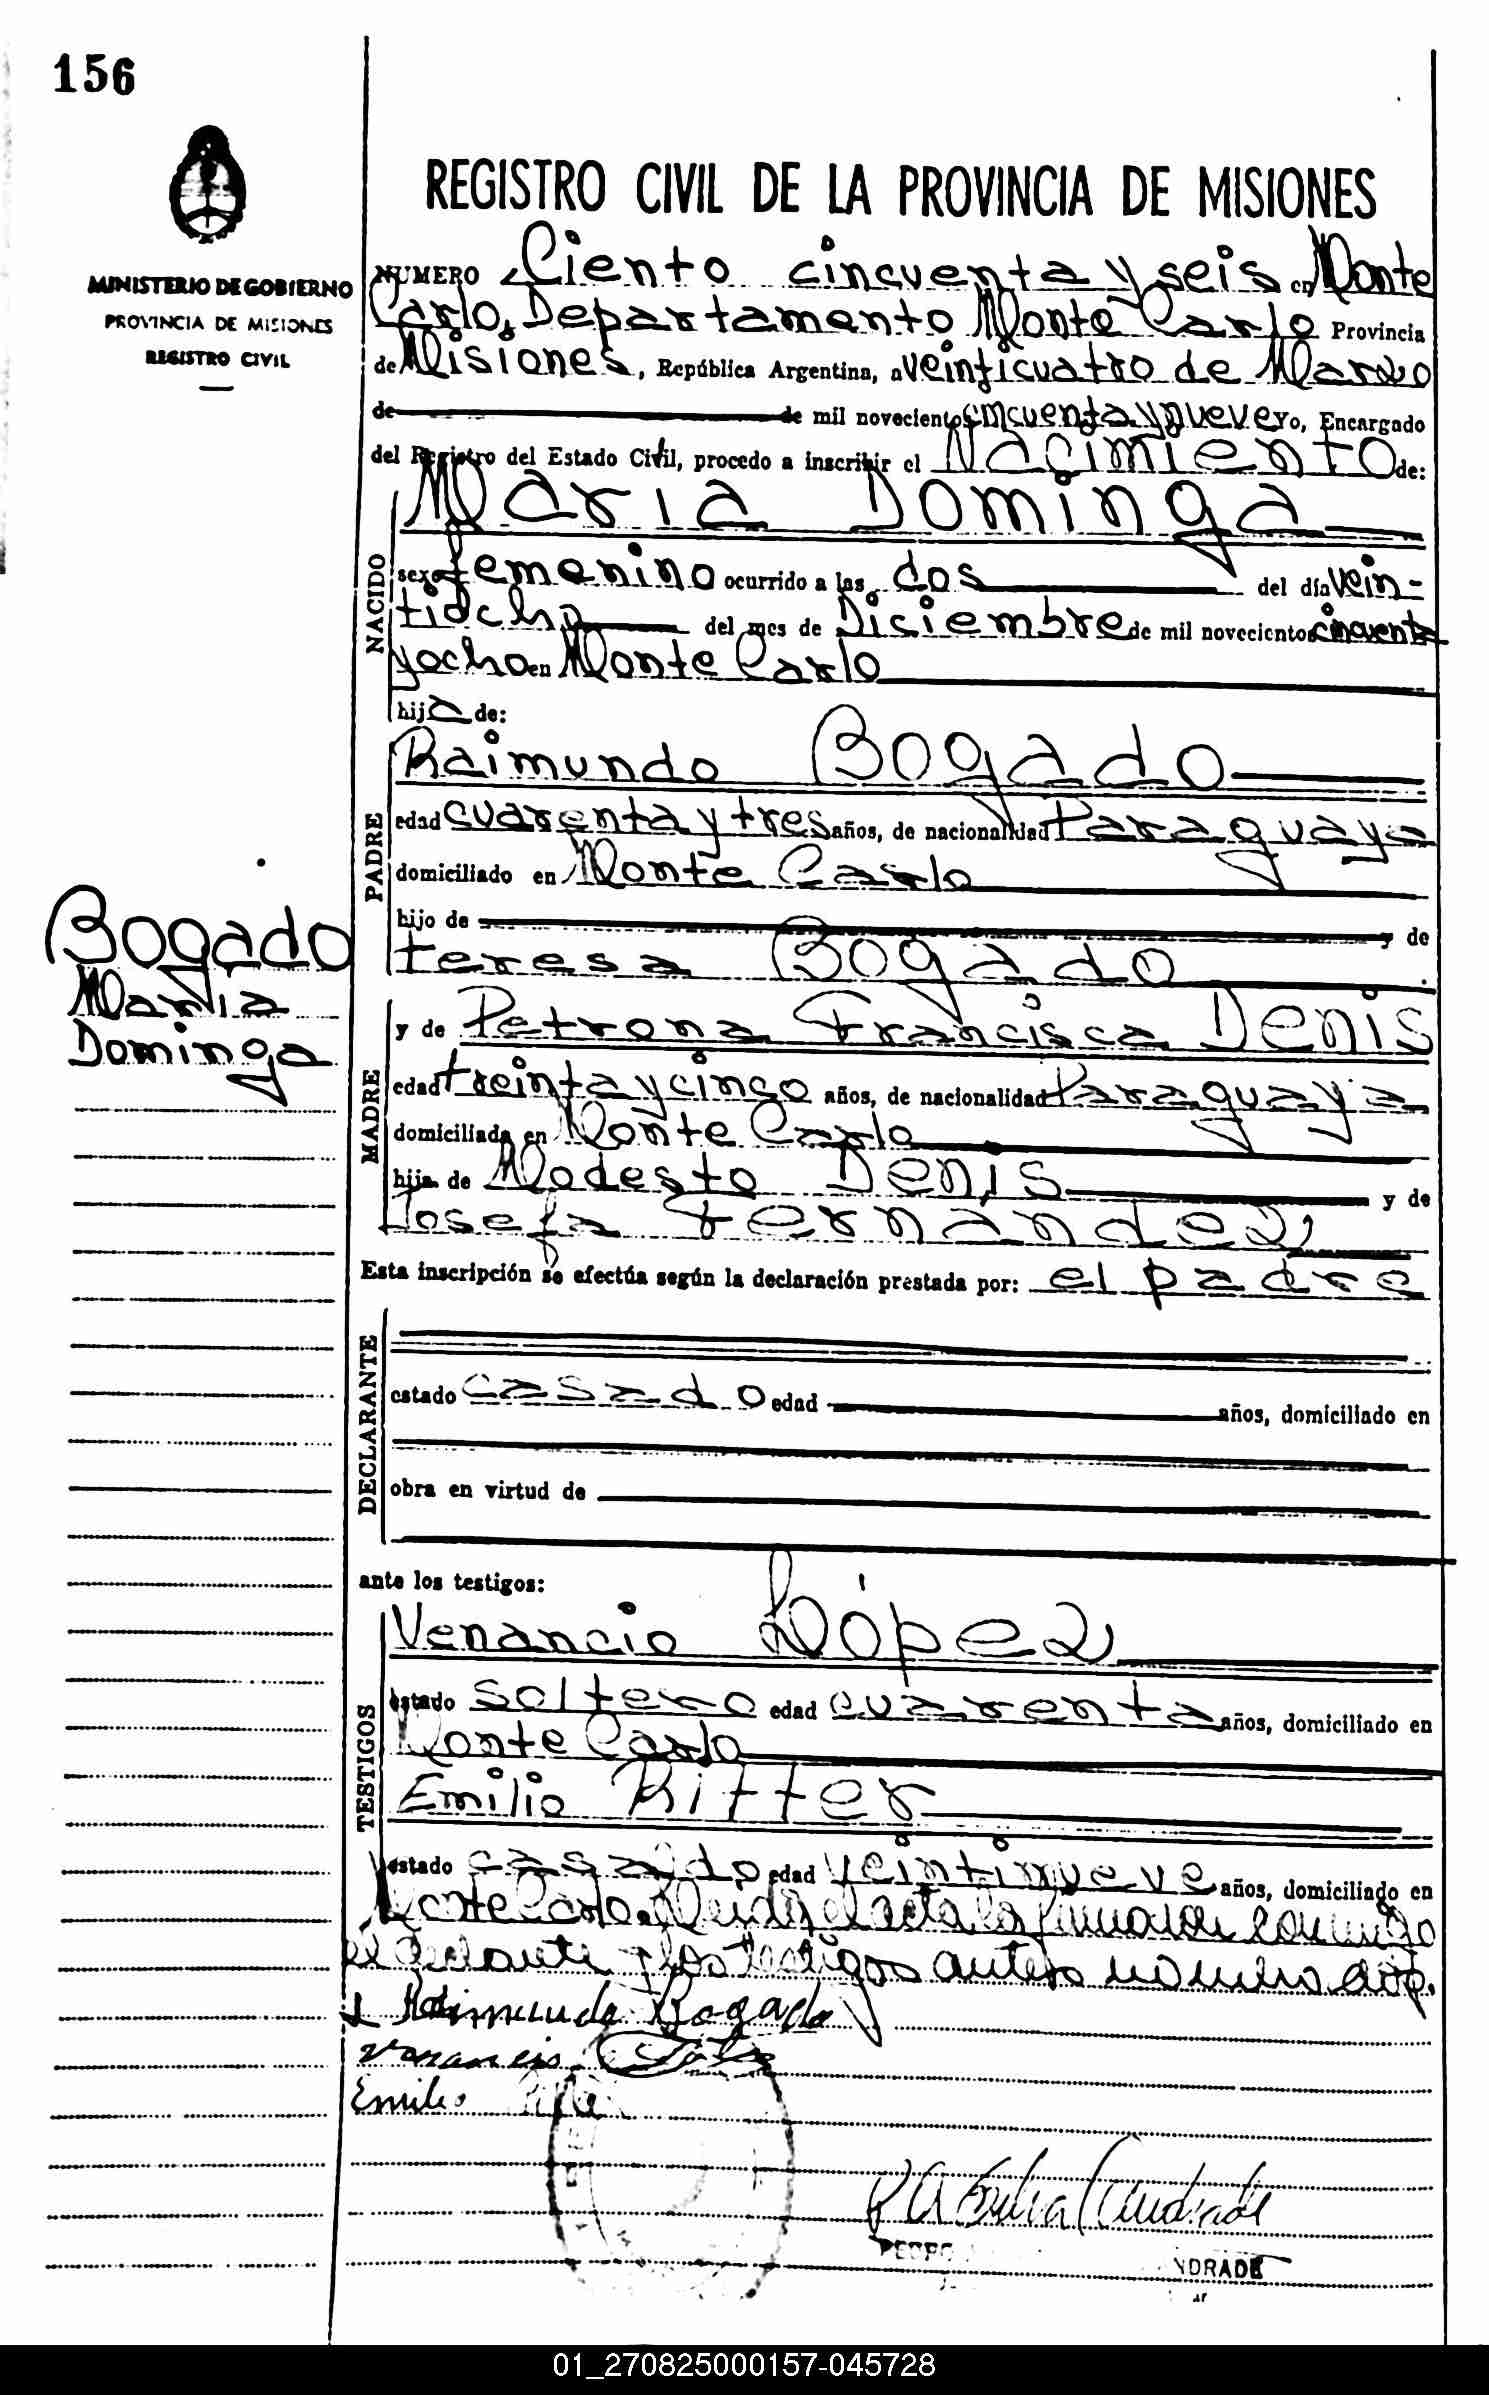 156
MINISTERIO DE GOBIERNO
PROVINCIA DE MISIONES
REGISTRO CIVIL
REGISTRO CIVIL DE LA PROVINCIA DE MISIONES
NUMERO Ciento cincuenta y seis en Monte
Carlo, Departamento Monte Carlo Provincia
de Misiones, República Argentina, a veinticuatro de Marzo
de de mil novecientos cincuenta y nueve Yo, Encargado
del Registro del Estado Civil, procedo a inscribir el Nacimiento de:
NACIDO
Maria Dominga
sexo femenino ocurrido a las dos del día vein-
tiocho del mes de Diciembre de mil novecientos cincuenta
y ocho en Monte Carlo
hija de:
PADRE
Raimundo Bogado
edad cuarenta y tres años, de nacionalidad Paraguaya
domiciliado en Monte Carlo
hijo de y de
teresa Bogado
Bogado
Maria
Dominga
MADRE
y de Petrona Francisca Denis
edad treinta y cinco años, de nacionalidad Paraguaya
domiciliada en Monte Carlo
hija de Modesto Denis y de
Josefa Fernandez
Esta inscripción se efectúa según la declaración prestada por: el padre
DECLARANTE
estado casado edad años, domiciliado en
obra en virtud de
ante los testigos:
TESTIGOS
Venancio López
estado soltero edad cuarenta años, domiciliado en
Monte Carlo
Emilio Ritter
estado casado edad veintinueve años, domiciliado en
Monte Carlo. Leida el acta la firmaron conmigo
el y los testigos antes
Raimundo Bogado
Venancio
Emilio
Andrade
PEDRO NDRADE
01_270825000157-045728